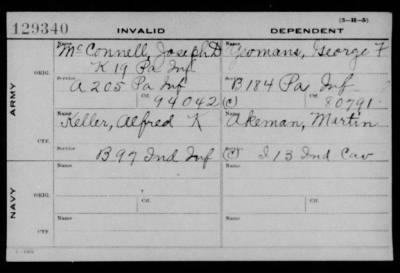 (3-H-5)
129340 INVALID DEPENDENT
Name McConnell, Joseph D Name Yeomans, George F
ARMY ORIG. K 19 Pa Inf
Service A 205 Pa Inf Service B 184 Pa Inf
Ctf. 94042 (C) Ctf. 80791
Name Keller, Alfred K Name Akeman, Martin
Service B 97 Ind Inf (C) I 13 Ind Cav
CTF. Ctf. Ctf.
NAVY ORIG. Name Name
Service Ctf. Service Ctf.
CTF. Name Name